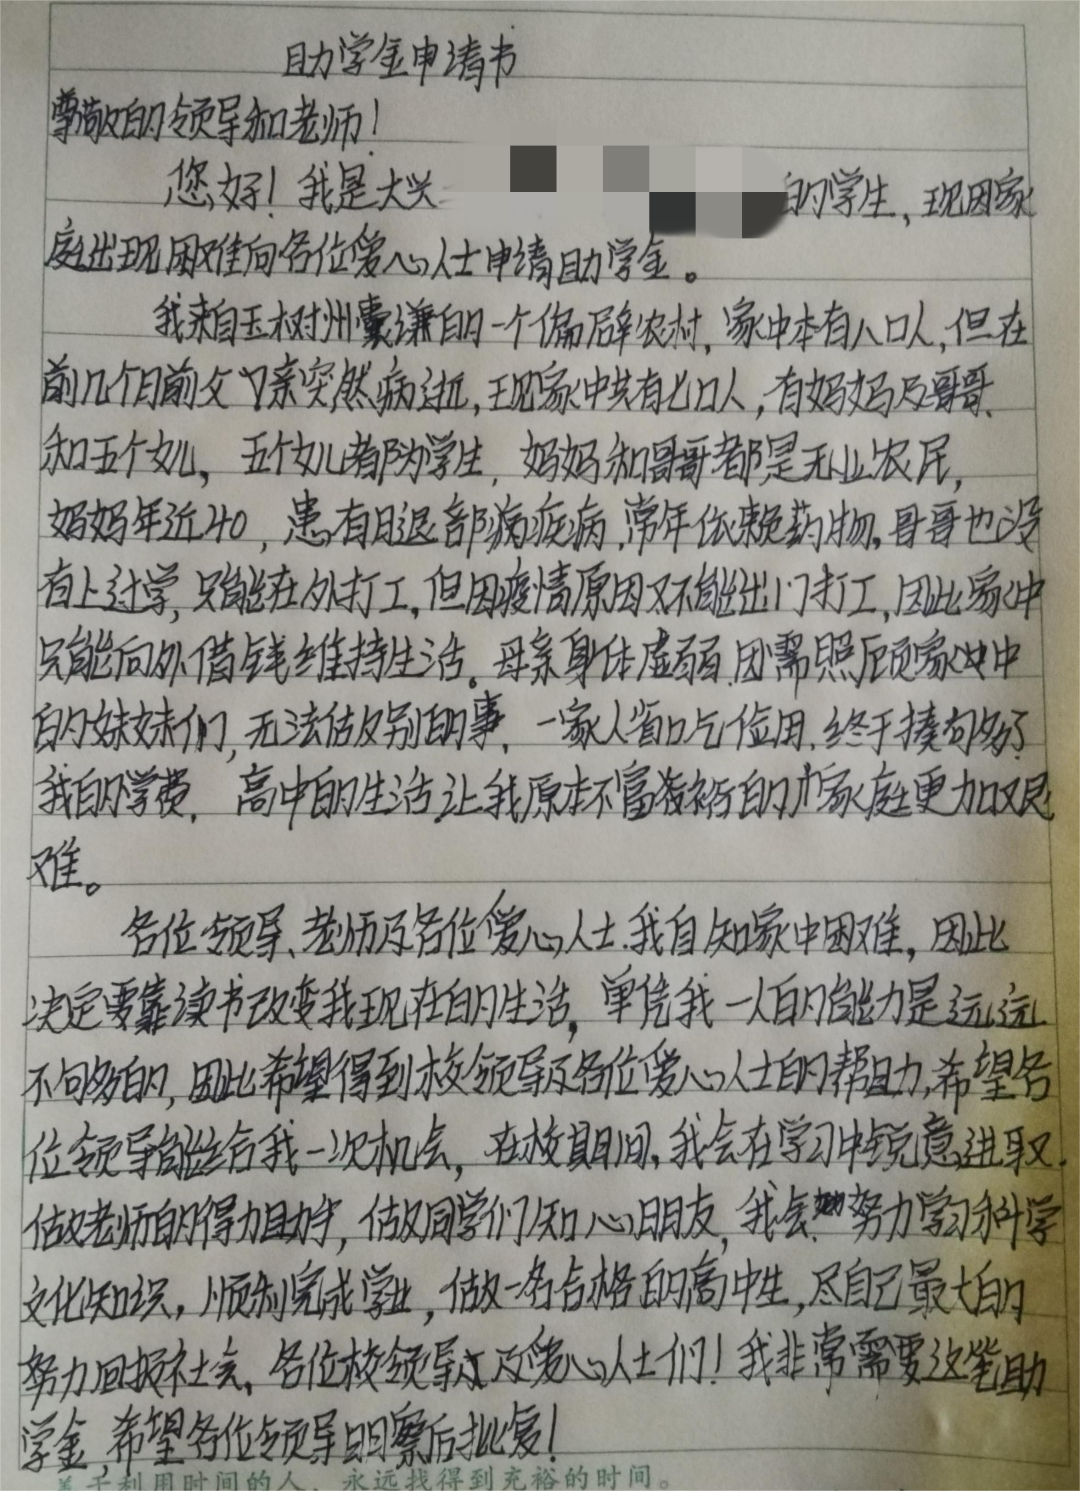 助学金申请书
尊敬的领导和老师！
您好！我是大兴
的学生，现因家
庭出现困难向各位爱心人士申请助学金。
我来自玉树州囊谦的一个偏僻农村，家中本有八口人，但在
前几个月前父亲突然病逝，现家中共有七口人，有妈妈及哥哥
和五个女儿，五个女儿都为学生，妈妈和哥哥都是无业农民，
妈妈年近40，患有腿部病疾病，常年依赖药物，哥哥也没
有上过学，只能在外打工，但因疫情原因又不能出门打工，因此家中
只能向外借钱维持生活。母亲身体虚弱，因需照顾家中
的妹妹们，无法做别的事，一家人省吃俭用，终于揍够了
我的学费，高中的生活让我原本不富裕的家庭更加艰
难。
各位领导、老师及各位爱心人士，我自知家中困难，因此
决定要靠读书改变我现在的生活，单凭我一人的能力是远远
不够的，因此希望得到校领导及各位爱心人士的帮助，希望各
位领导能给我一次机会，在校期间，我会在学习中锐意进取，
做老师的得力助手，做同学们知心朋友，我会努力学习科学
文化知识，顺利完成学业，做一名合格的高中生，尽自己最大的
努力回报社会，各位校领导及爱心人士们！我非常需要这笔助
学金，希望各位领导明察后批复！
善于利用时间的人，永远找得到充裕的时间。